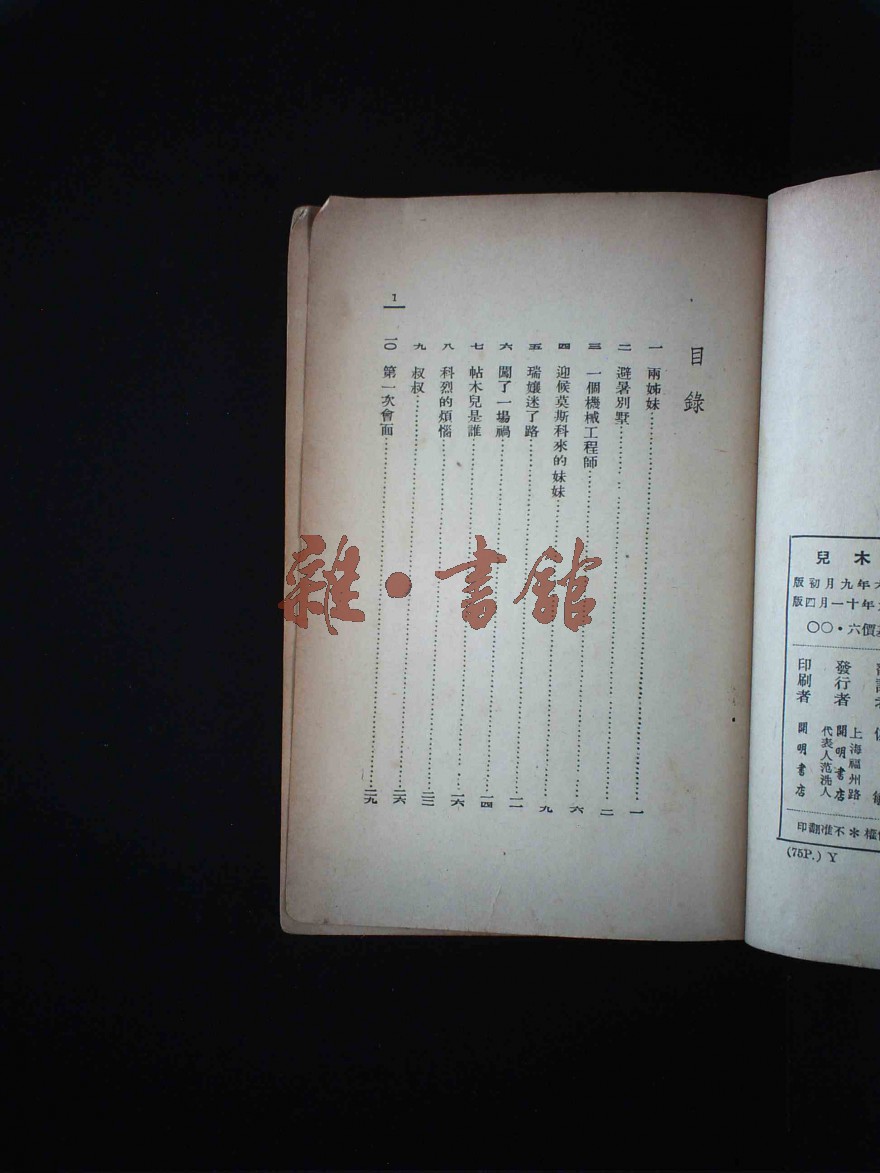 木兒
年九月初版
年十一月四版
價六・〇〇
發行者
上海福州路
開明書店
代表人范洗人
印刷者
開明書店
權＊不准翻印
(75P.) Y
目錄
一 兩姊妹……一
二 避暑別墅……二
三 一個機械工程師……六
四 迎候莫斯科來的妹妹……九
五 瑞孃迷了路……
六 闖了一場禍……一四
七 帖木兒是誰……一六
八 科烈的煩惱……二三
九 叔叔……二六
一〇 第一次會面……二九
1
雜・書館